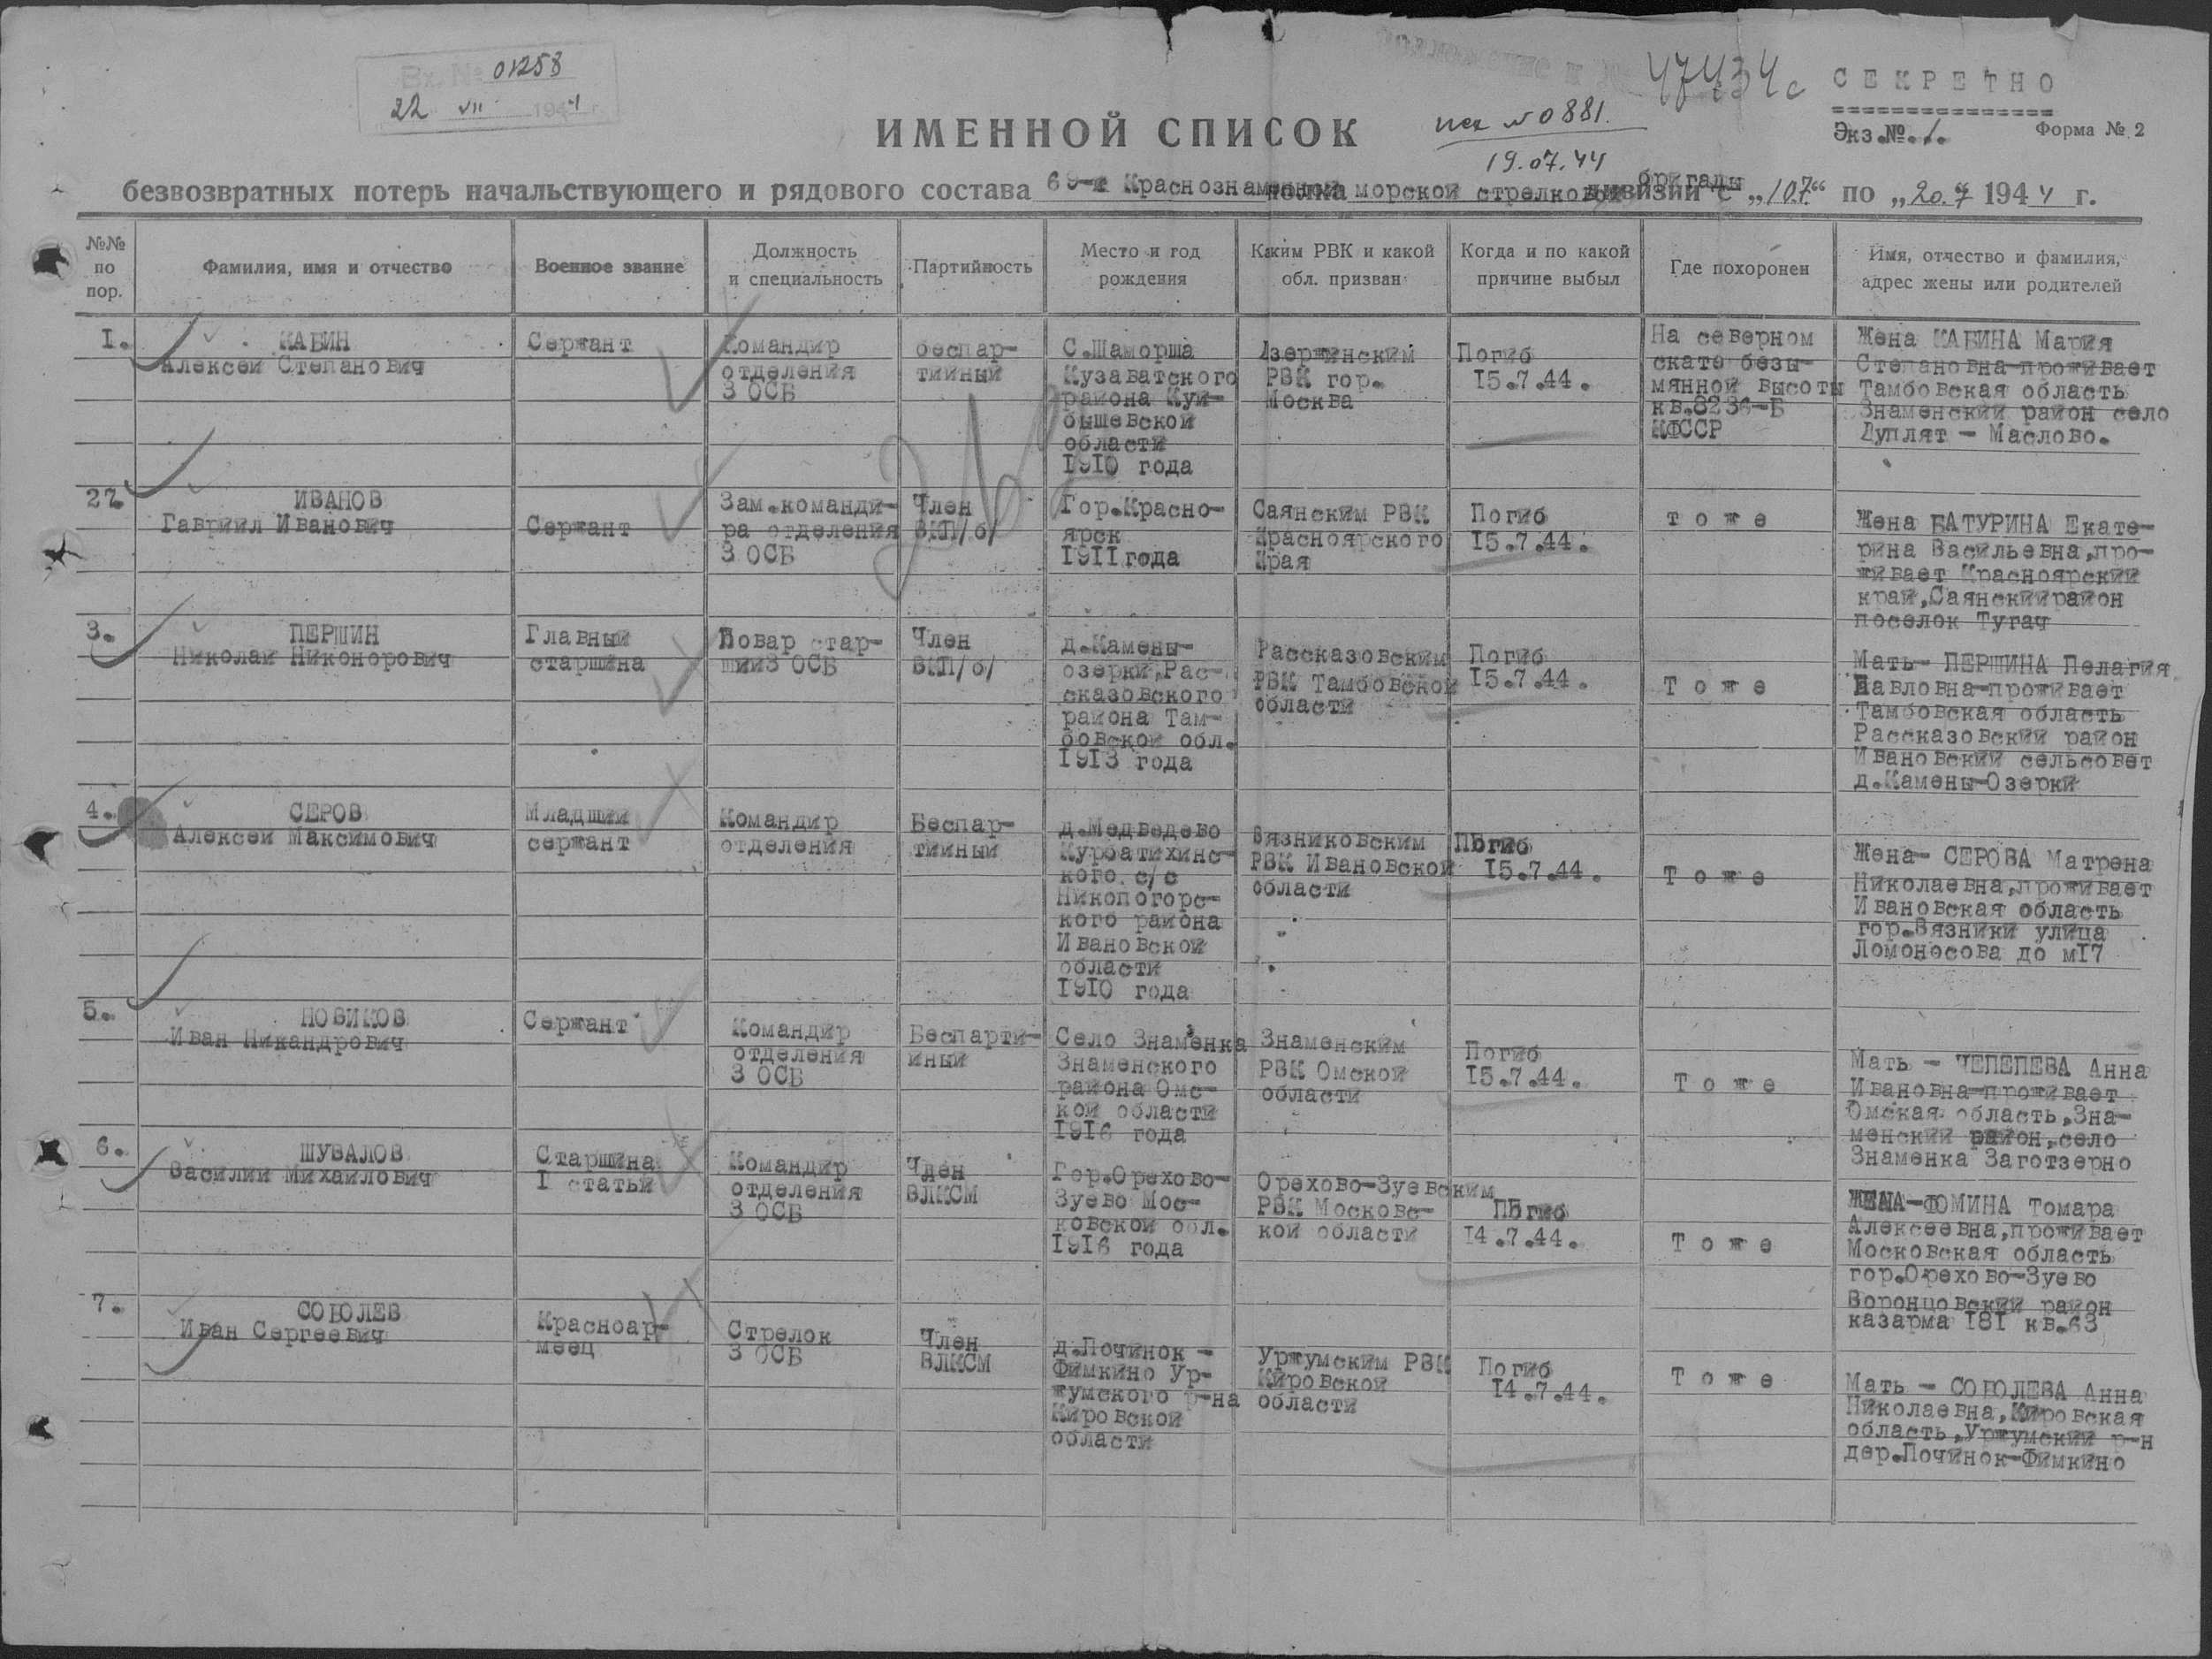 Вх. № 01258
22 VII 1944 г.
47434с
СЕКРЕТНО
Экз.№.1.
Форма № 2
ИМЕННОЙ СПИСОК
исх №0881.
19.07.44
безвозвратных потерь начальствующего и рядового состава 69-й Краснознаменной полка морской стрелковой дивизии бригады с „10.7“ по „20.7 1944 г.
№№ по пор.
Фамилия, имя и отчество
Военное звание
Должность и специальность
Партийность
Место и год рождения
Каким РВК и какой обл. призван
Когда и по какой причине выбыл
Где похоронен
Имя, отчество и фамилия, адрес жены или родителей
1.
КАБИН
Алексей Степанович
Сержант
Командир
отделения
3 ОСБ
беспар-
тийный
С.Шаморша
Кузаватского
района Куй-
бышевской
области
1910 года
Дзержинским
РВК гор.
Москва
Погиб
15.7.44.
На северном
скате безы-
мянной высоты
кв.8236-Б
КФССР
Жена КАБИНА Мария
Степановна-проживает
Тамбовская область
Знаменский район село
Дуплят - Маслово.
22
ИВАНОВ
Гавриил Иванович
Сержант
Зам.команди-
ра отделения
3 ОСБ
Член
ВКП/б/
Гор.Красно-
ярск
1911 года
Саянским РВК
Красноярского
Края
Погиб
15.7.44.
т о ж е
Жена БАТУРИНА Екате-
рина Васильевна,про-
живает Красноярский
край,Саянский район
поселок Тугач
3.
ПЕРШИН
Николай Никонорович
Главный
старшина
Повар стар-
ший 3 ОСБ
Член
ВКП/б/
д.Камены-
озерки,Рас-
сказовского
района Там-
бовской обл.
1913 года
Рассказовским
РВК Тамбовской
области
Погиб
15.7.44.
Т о ж е
Мать- ПЕРШИНА Пелагия
Павловна-проживает
Тамбовская область
Рассказовский район
Ивановский сельсовет
д.Камены-Озерки
4.
СЕРОВ
Алексей Максимович
Младший
сержант
Командир
отделения
Беспар-
тийный
д.Медведево
Курбатихинс-
кого с/с
Никологорс-
кого района
Ивановской
области
1910 года
Вязниковским
РВК Ивановской
области
Погиб
15.7.44.
Т о ж е
Жена- СЕРОВА Матрена
Николаевна,проживает
Ивановская область
гор.Вязники улица
Ломоносова до м17
5.
НОВИКОВ
Иван Никандрович
Сержант
Командир
отделения
3 ОСБ
Беспарти-
йный
Село Знаменка
Знаменского
района Омс-
кой области
1916 года
Знаменским
РВК Омской
области
Погиб
15.7.44.
Т о ж е
Мать - ЧЕПЕЛЕВА Анна
Ивановна-проживает
Омская область,Зна-
менский район,село
Знаменка Заготзерно
6.
ШУВАЛОВ
Василий Михайлович
Старшина
I статьи
Командир
отделения
3 ОСБ
Член
ВЛКСМ
Гор.Орехово-
Зуево Мос-
ковской обл.
1916 года
Орехово-Зуевским
РВК Московс-
кой области
Погиб
14.7.44.
Т о ж е
ЖЕНА-ФОМИНА Томара
Алексеевна,проживает
Московская область
гор.Орехово-Зуево
Воронцовский район
казарма 181 кв.63
7.
СОБОЛЕВ
Иван Сергеевич
Красноар-
меец
Стрелок
3 ОСБ
Член
ВЛКСМ
д.Починок -
Фимкино Ур-
жумского р-на
Кировской
области
Уржумским РВК
Кировской
области
Погиб
14.7.44.
Т о ж е
Мать - СОБОЛЕВА Анна
Николаевна,Кировская
область,Уржумский р-н
дер.Починок-Фимкино